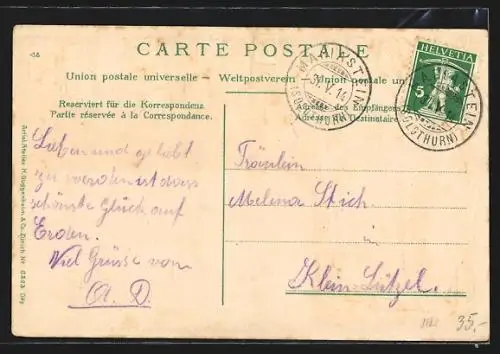 CARTE POSTALE
Union postale universelle – Weltpostverein – Union postale un
Reserviert für die Korrespondenz
Partie réservée à la Correspondance.
Adresse des Empfängers
Adresse Destinataire
HELVETIA
5
MARIASTEIN
V. 14
(SOLOTHURN)
STEIN
(SOLOTHURN)
Lieben und geliebt
zu werden ist das
schönste Glück auf
Erden.
Viel Grüsse von
A. D.
Fräulein
Melena Stich
in
Klein-Lützel.
H. Guggenheim & Co., Zürich Nr.
35.-